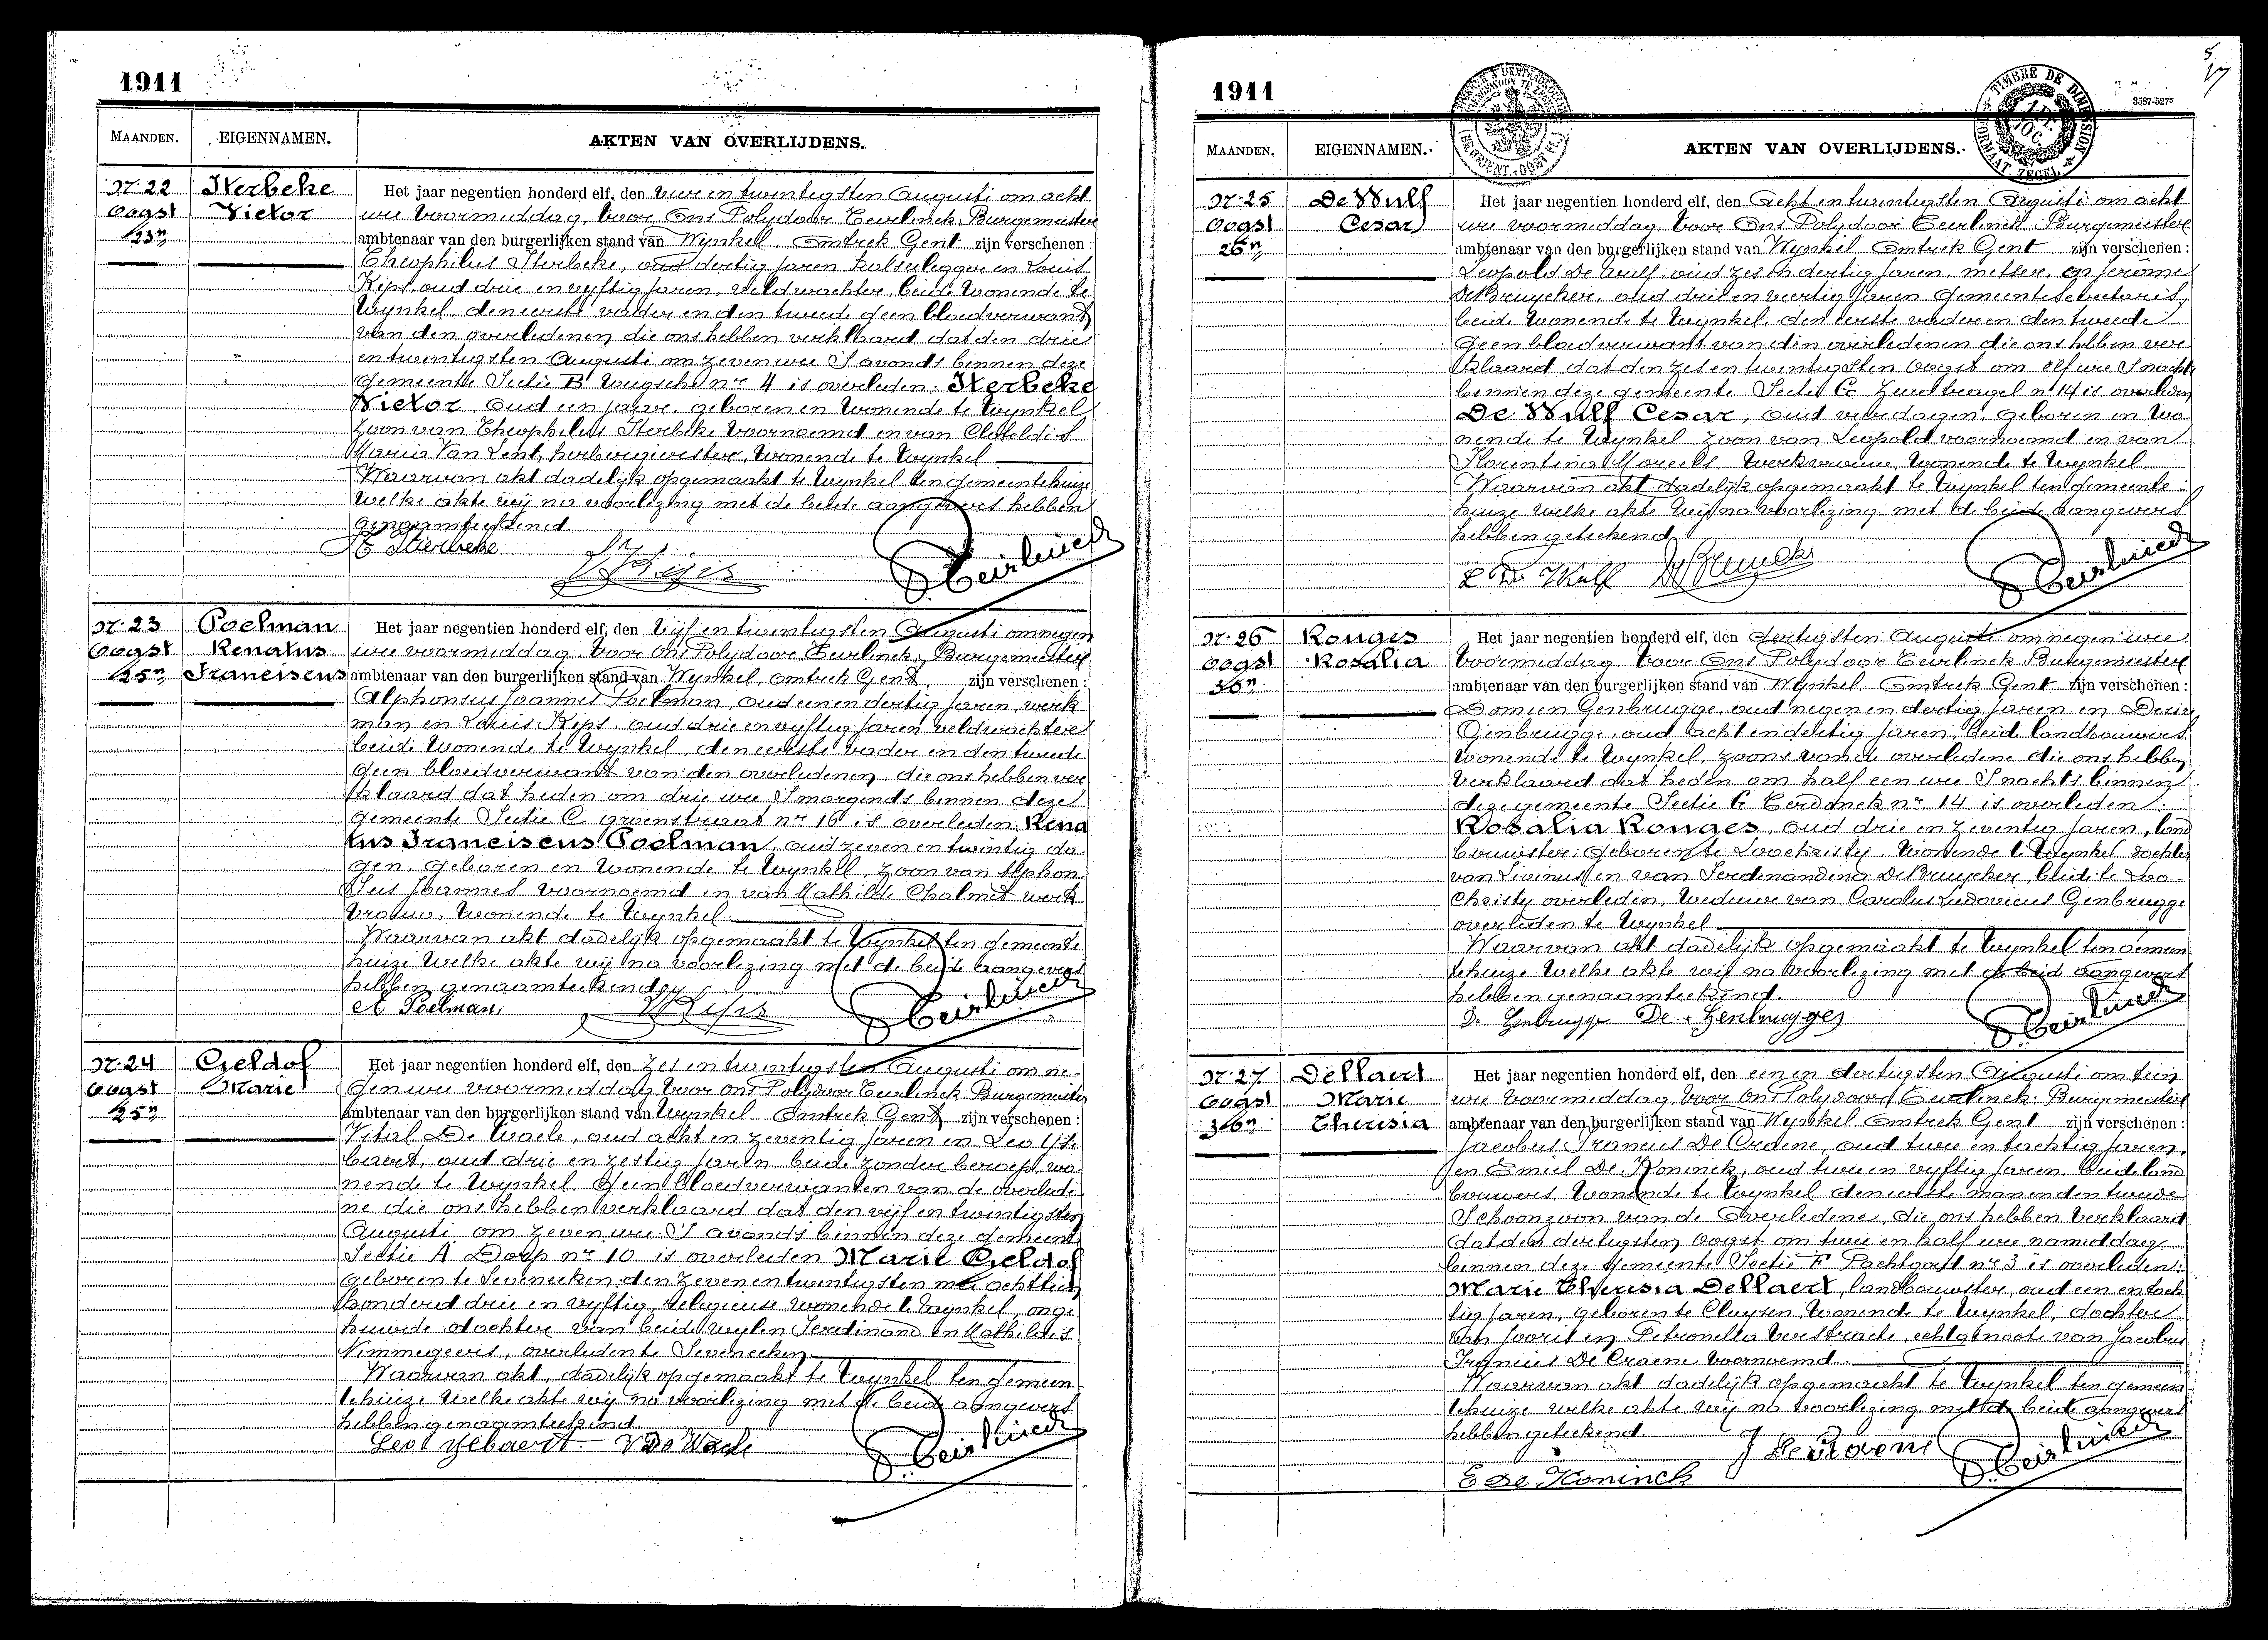 1911
MAANDEN. EIGENNAMEN. AKTEN VAN OVERLIJDENS.
Nr. 22 Sterbeke Het jaar negentien honderd elf, den vier en twintigsten Augusti om acht
Oogst Victor ure voormiddag, voor Ons Polydoor Teirlinck, Burgemeester
23n ambtenaar van den burgerlijken stand van Wynkel, Omtrek Gent zijn verschenen :
Theophilus Sterbeke, oud dertig jaren kalseilegger en Louis
Kips, oud drie en vyftig jaren, veldwachter, beide wonende te
Wynkel, den eerste vader en den tweede geen bloedverwant
van den overledenen, die ons hebben verklaard dat den drie
en twintigsten Augusti om zeven ure S avonds binnen deze
gemeente Sectie B nr 4 is overleden: Sterbeke
Victor, oud een jaar, geboren en wonende te Wynkel
Zoon van Theophilus Sterbeke voornoemd en van Clothildis
Maria Van Lent, herbergierster, wonende te Wynkel
Waarvan akt dadelijk opgemaakt te Wynkel ten gemeentehuize
welke akte wij na voorlezing met de beide aangevers hebben
genaamteekend
T Sterbeke L Kips P. Teirlinck
Nr. 23 Poelman Het jaar negentien honderd elf, den vijf en twintigsten Augusti om negen
Oogst Renatus ure voormiddag voor Ons Polydoor Teirlinck, Burgemeester
25n Franciscus ambtenaar van den burgerlijken stand van Wynkel, omtrek Gent, zijn verschenen :
Alphonsus Joannes Poelman, oud een en dertig jaren, werk
man en Louis Kips, oud drie en vyftig jaren veldwachter
beide wonende te Wynkel, den eerste vader en den tweede
geen bloedverwant van den overledenen, die ons hebben ver
klaard dat heden om drie ure S morgends binnen deze
gemeente Sectie C groenstraat nr 16 is overleden: Rena
tus Franciscus Poelman, oud zeven en twintig da
gen, geboren en wonende te Wynkel, zoon van Alphon
sus Joannes voornoemd en van Mathilde Chalmet werk
vrouw, wonende te Wynkel
Waarvan akt dadelijk opgemaakt te Wynkel ten gemeente
huize welke akte wij na voorlezing met de beide aangevers
hebben genaamteekend
A Poelman, L Kips P. Teirlinck
Nr. 24 Geldof Het jaar negentien honderd elf, den zes en twintigsten Augusti om ne-
Oogst Marie gen ure voormiddag voor ons Polydoor Teirlinck, Burgemeester
25n ambtenaar van den burgerlijken stand van Wynkel Omtrek Gent zijn verschenen :
Vital De Waele, oud acht en zeventig jaren en Leo Yse
baert, oud drie en zestig jaren beide zonder beroep, wo
nende te Wynkel Geen bloedverwanten van de overlede
ne die ons hebben verklaard dat den vijf en twintigsten
Augusti om zeven ure S avonds binnen deze gemeente
Sectie A Dorp nr 10 is overleden Marie Geldof
geboren te Sevenecken den zeven en twintigsten mei achttien
honderd drie en vyftig, religieuse wonende te Wynkel, onge
huwde dochter van beide wylen Ferdinand en Mathildis
Nimmegeers, overleden te Sevenecken
Waarvan akt, dadelijk opgemaakt te Wynkel ten gemeen
tehuize welke akte wij na voorlezing met de beide aangevers
hebben genaamteekend.
Leo Ysebaert V De Waele P. Teirlinck
1911
3587-5275
TIMBRE DE DIMENSION
FORMAAT ZEGEL
MAANDEN. EIGENNAMEN. AKTEN VAN OVERLIJDENS.
Nr. 25 De Wulf Het jaar negentien honderd elf, den Acht en twintigsten Augusti om acht
Oogst Cesar ure voormiddag, voor Ons Polydoor Teirlinck Burgemeester
26n ambtenaar van den burgerlijken stand van Wynkel Omtrek Gent zijn verschenen :
Leopold De Wulf, oud zes en dertig jaren, metser, en Jerôme
De Bruycker, oud drie en veertig jaren Gemeente Secretaris,
beide wonende te Wynkel, den eerste vader en den tweede
geen bloedverwant van den overledenen die ons hebben ver
klaard dat den zes en twintigsten Oogst om elf ure S nachts
binnen deze gemeente Sectie G nr 14 is overleden
De Wulf Cesar, oud vier dagen, geboren en wo
nende te Wynkel zoon van Leopold voornoemd en van
Florentina Moreels, werkvrouw, wonende te Wynkel
Waarvan akt dadelijk opgemaakt te Wynkel ten gemeente
huize welke akte wij na voorlezing met de beide aangevers
hebben geteekend
L De Wulf De Bruycker P. Teirlinck
Nr. 26 Ronges Het jaar negentien honderd elf, den dertigsten Augusti om negen ure
Oogst Rosalia voormiddag voor Ons Polydoor Teirlinck Burgemeester
30n ambtenaar van den burgerlijken stand van Wynkel Omtrek Gent zijn verschenen :
Domien Genbrugge, oud negen en dertig jaren en Desiré
Genbrugge, oud acht en dertig jaren, beide landbouwers
wonende te Wynkel, zoons van de overledene die ons hebben
verklaard dat heden om half een ure S nachts binnen
deze gemeente Sectie G nr 14 is overleden:
Rosalia Ronges, oud drie en zeventig jaren, land
bouwster, geboren te Loochristy, wonende te Wynkel dochter
van Livinus en van Ferdinandina De Bruycker, beide te Loo-
Christy overleden, weduwe van Carolus Ludovicus Genbrugge
overleden te Wynkel
Waarvan akt dadelijk opgemaakt te Wynkel ten gemeen
tehuize welke akte wij na voorlezing met de beide aangevers
hebben genaamteekend.
Do Genbrugge De Genbrugge P. Teirlinck
Nr. 27 Dellaert Het jaar negentien honderd elf, den een en dertigsten Augusti om tien
Oogst Marie ure voormiddag, voor Ons Polydoor Teirlinck, Burgemeester
30n Theresia ambtenaar van den burgerlijken stand van Wynkel Omtrek Gent zijn verschenen :
Jacobus Francies De Craene, oud twee en tachtig jaren,
en Emiel De Koninck, oud twee en vyftig jaren, beide land
bouwers wonende te Wynkel den eerste man en den tweede
Schoonzoon van de Overledene, die ons hebben verklaard
dat den dertigsten Oogst om twee en half ure namiddag
binnen deze gemeente Sectie F nr 3 is overleden:
Marie Theresia Dellaert, landbouwster, oud een en tach
tig jaren, geboren te Cluysen, wonende te Wynkel, dochter
van Jooris en Petronella Verstraete, echtgenoote van Jacobus
Francies De Craene voornoemd
Waarvan akt dadelijk opgemaakt te Wynkel ten gemeen
tehuize welke akte wij na voorlezing met de beide aangevers
hebben geteekend.
J De Craene P. Teirlinck
E De Koninck